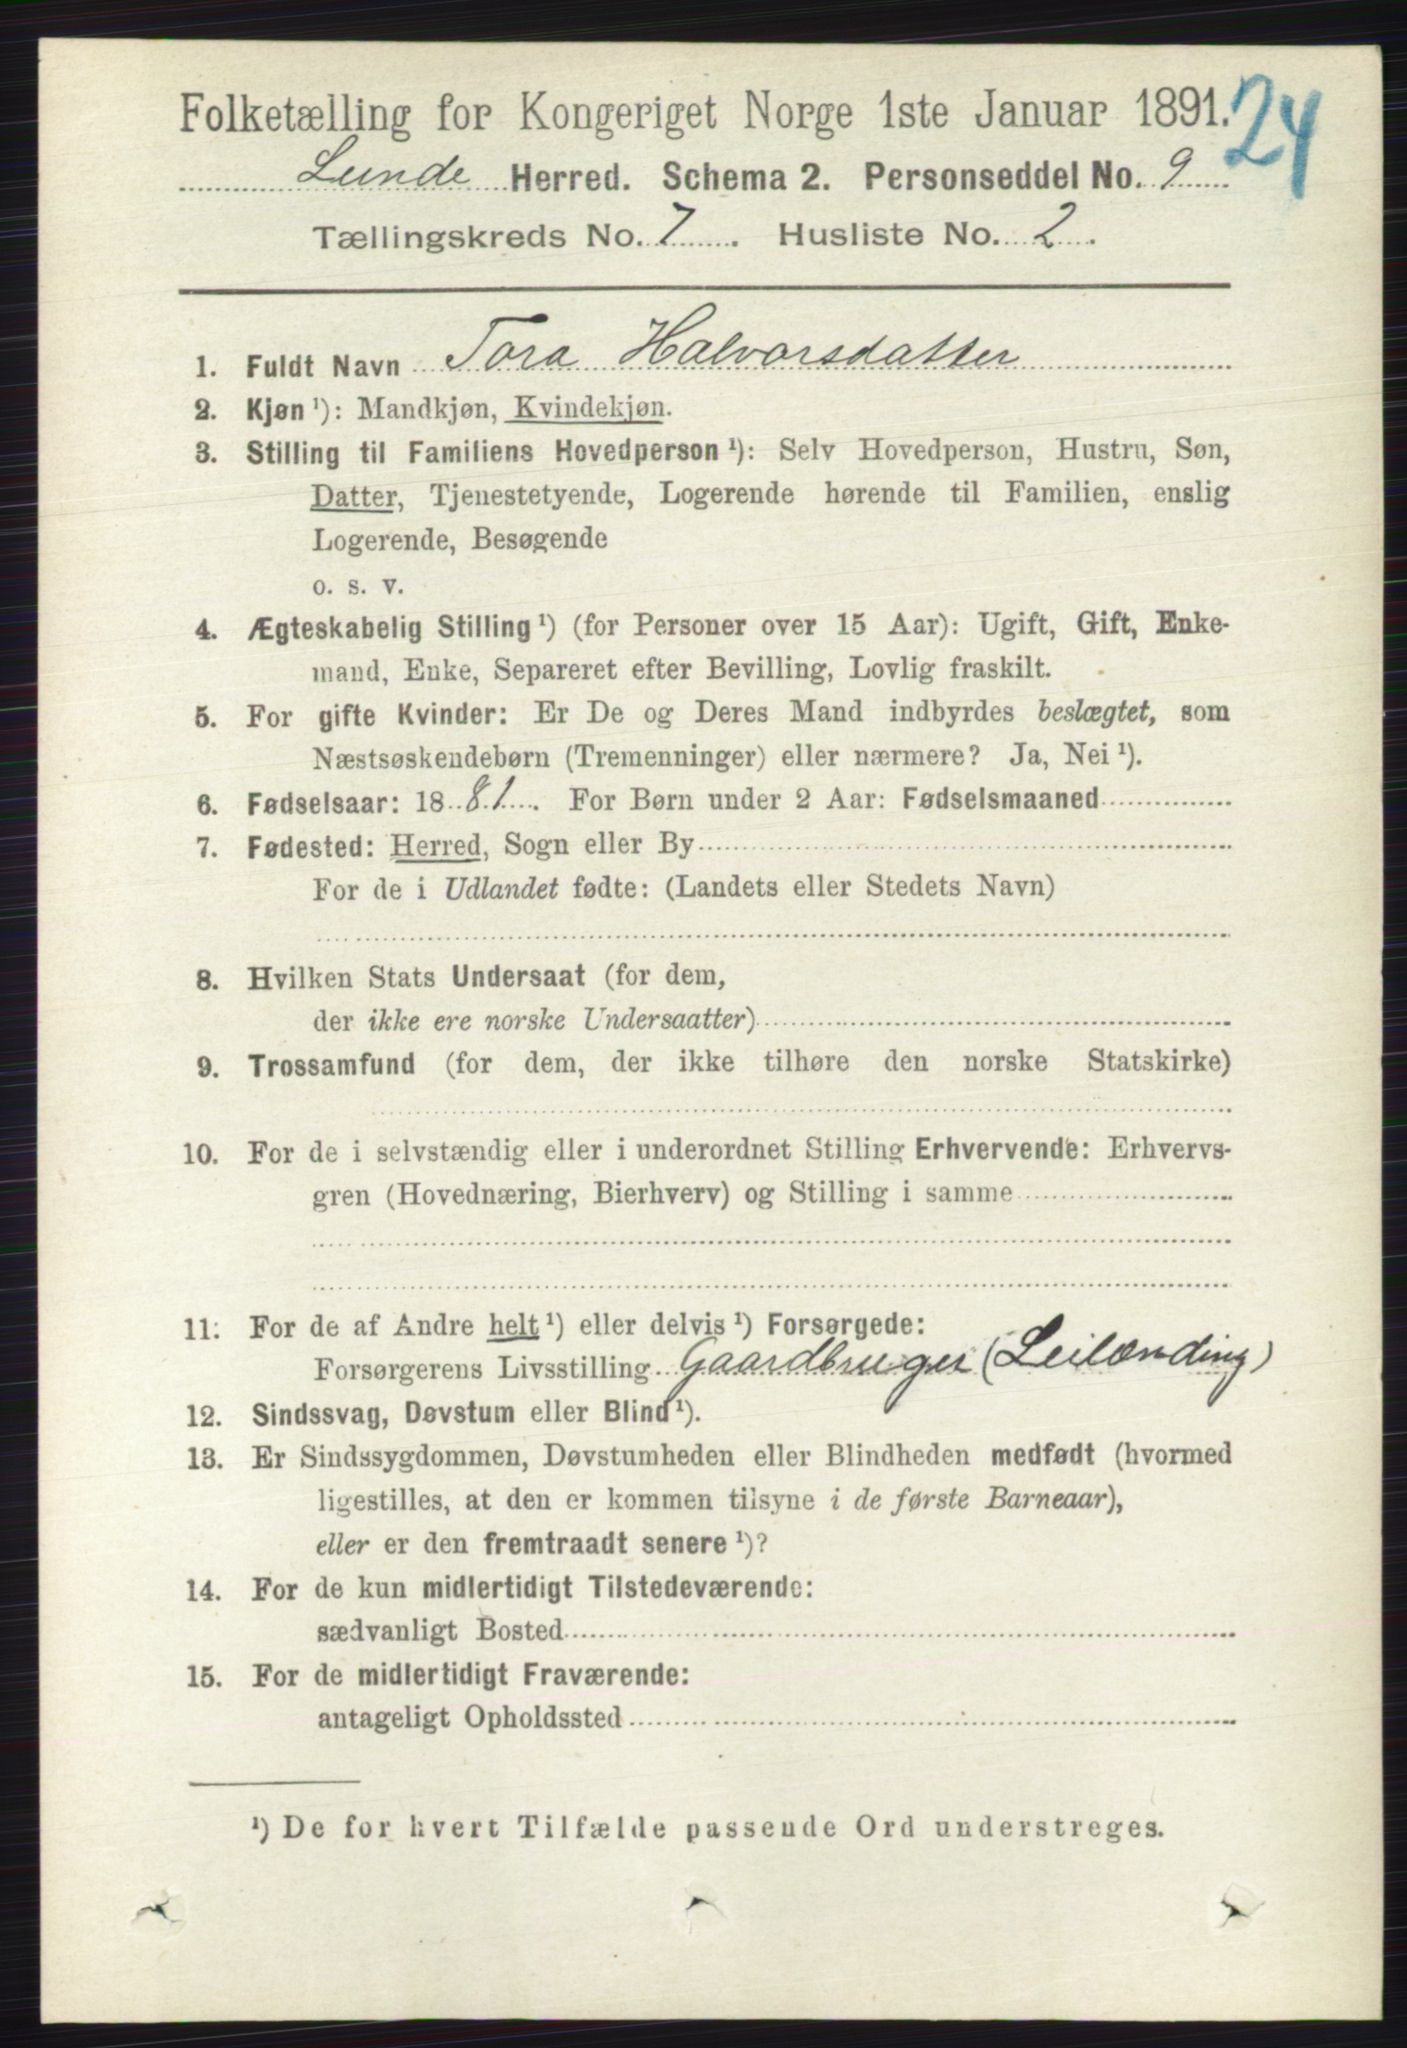 Folketælling for Kongeriget Norge 1ste Januar 1891. 24
Lunde Herred. Schema 2. Personseddel No. 9
Tællingskreds No. 7. Husliste No. 2.
1. Fuldt Navn Tora Halvorsdatter
2. Kjøn ¹): Mandkjøn, Kvindekjøn.
3. Stilling til Familiens Hovedperson ¹): Selv Hovedperson, Hustru, Søn,
Datter, Tjenestetyende, Logerende hørende til Familien, enslig
Logerende, Besøgende
o. s. v.
4. Ægteskabelig Stilling ¹) (for Personer over 15 Aar): Ugift, Gift, Enke-
mand, Enke, Separeret efter Bevilling, Lovlig fraskilt.
5. For gifte Kvinder: Er De og Deres Mand indbyrdes beslægtet, som
Næstsøskendebørn (Tremenninger) eller nærmere? Ja, Nei ¹).
6. Fødselsaar: 1881. For Børn under 2 Aar: Fødselsmaaned
7. Fødested: Herred, Sogn eller By
For de i Udlandet fødte: (Landets eller Stedets Navn)
8. Hvilken Stats Undersaat (for dem,
der ikke ere norske Undersaatter)
9. Trossamfund (for dem, der ikke tilhøre den norske Statskirke)
10. For de i selvstændig eller i underordnet Stilling Erhvervende: Erhvervs-
gren (Hovednæring, Bierhverv) og Stilling i samme
11: For de af Andre helt ¹) eller delvis ¹) Forsørgede:
Forsørgerens Livsstilling Gaardbruger (Leilænding)
12. Sindssvag, Døvstum eller Blind ¹).
13. Er Sindssygdommen, Døvstumheden eller Blindheden medfødt (hvormed
ligestilles, at den er kommen tilsyne i de første Barneaar),
eller er den fremtraadt senere ¹)?
14. For de kun midlertidigt Tilstedeværende:
sædvanligt Bosted
15. For de midlertidigt Fraværende:
antageligt Opholdssted
¹) De for hvert Tilfælde passende Ord understreges.